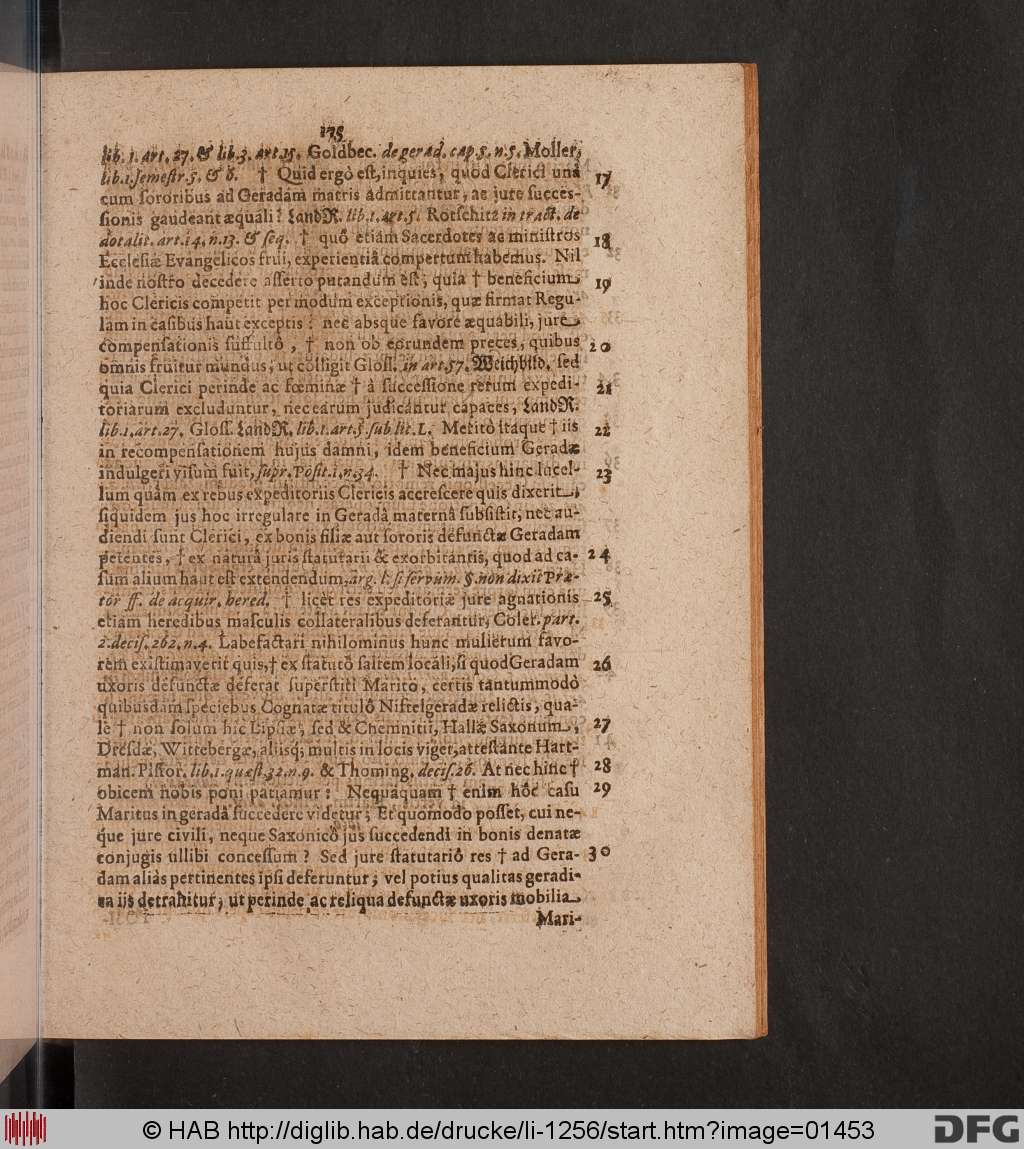 175
lib. 1. art. 27. & lib. 3. art. 15. Goldbec. de gerad. cap. 5. n. 5. Moller,
lib. 1. semestr. 5. & 8. † Quid ergò est, inquies, quod Clerici unà 17
cum sororibus ad Geradam matris admittantur, ac jure succes-
sionis gaudeant æquali? LandR. lib. 1. art. 5. Rotschitz in tract. de
dotalit. art. 14. n. 13. & seq. † quô etiam Sacerdotes ac ministros 18
Ecclesiæ Evangelicos frui, experientiâ compertum habemus. Nil
inde nostro decedere asserto putandum est; quia † beneficium 19
hoc Clericis competit per modum exceptionis, quæ firmat Regu-
lam in casibus haut exceptis: nec absque favore æquabili, jure
compensationis suffultô, † non ob eorundem preces, quibus 20
omnis fruitur mundus; ut colligit Gloss. in art. 57. Weichbild. sed
quia Clerici perinde ac fœminæ † à successione rerum expedi- 21
toriarum excluduntur, nec earum judicantur capaces, LandR.
lib. 1. art. 27. Gloss. LandR. lib. 1. art. 5. sub lit. L. Meritò itaque † iis 22
in recompensationem hujus damni, idem beneficium Geradæ
indulgeri visum fuit, supr. Posit. 1. n. 34. † Nec majus hinc lucel- 23
lum quàm ex rebus expeditoriis Clericis accrescere quis dixerit,
siquidem jus hoc irregulare in Geradâ maternâ subsistit; nec au-
diendi sunt Clerici, ex bonis filiæ aut sororis defunctæ Geradam
petentes, † ex naturâ juris statutarii & exorbitantis, quod ad ca- 24
sum alium haut est extendendum, arg. l. si servum. §. non dixit Præ-
tor ff. de acquir. hered. † licet res expeditoriæ jure agnationis 25
etiam heredibus masculis collateralibus deferantur, Coler. part.
2. decis. 262. n. 4. Labefactari nihilominus hunc mulierum favo-
rem existimaverit quis, † ex statutô saltem locali, si quod Geradam 26
uxoris defunctæ deferat superstiti Marito, certis tantummodò
quibusdam speciebus Cognatæ titulô Niftelgeradæ relictis, qua-
le † non solùm hîc Lipsiæ, sed & Chemnitii, Hallæ Saxonum, 27
Dresdæ, Wittebergæ, aliisq; multis in locis viget, attestante Hart-
man. Pistor. lib. 1. quæst. 32. n. 9. & Thoming. decis. 26. At nec hinc † 28
obicem nobis poni patiamur: Nequaquam † enim hôc casu 29
Maritus in geradâ succedere videtur; Et quomodo posset, cui ne-
que jure civili, neque Saxonicô jus succedendi in bonis denatæ
conjugis ullibi concessum? Sed jure statutariô res † ad Gera- 30
dam aliàs pertinentes ipsi deferuntur; vel potius qualitas geradi-
ca iis detrahitur; ut perinde ac reliqua defunctæ uxoris mobilia
Mari-
© HAB http://diglib.hab.de/drucke/li-1256/start.htm?image=01453
DFG